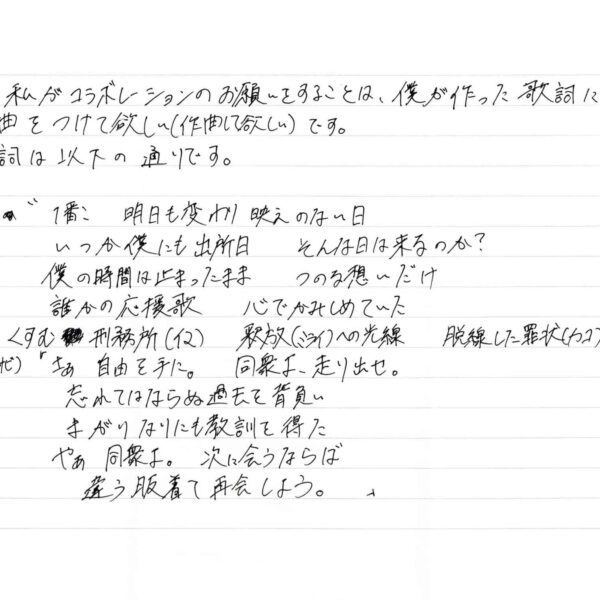 私がコラボレーションのお願いをすることは、僕が作った歌詞に
曲をつけて欲しい(作曲して欲しい)です。
詞は以下の通りです。
" 1番: 明日も変わり映えのない日
いつか僕にも出所日 そんな日は来るのか?
僕の時間は止まったまま つのる想いだけ
誰かの応援歌 心でかみしめていた
くすむ 刑務所(イマ) 釈放(ミライ)への光線 脱線した罪状(カコ)
「さぁ 自由を手に。 同衆よ、走り出せ。
忘れてはならぬ過去を背負い
まがりなりにも教訓を得た
やぁ 同衆よ。 次に会うならば
違う服着て再会しよう。 」